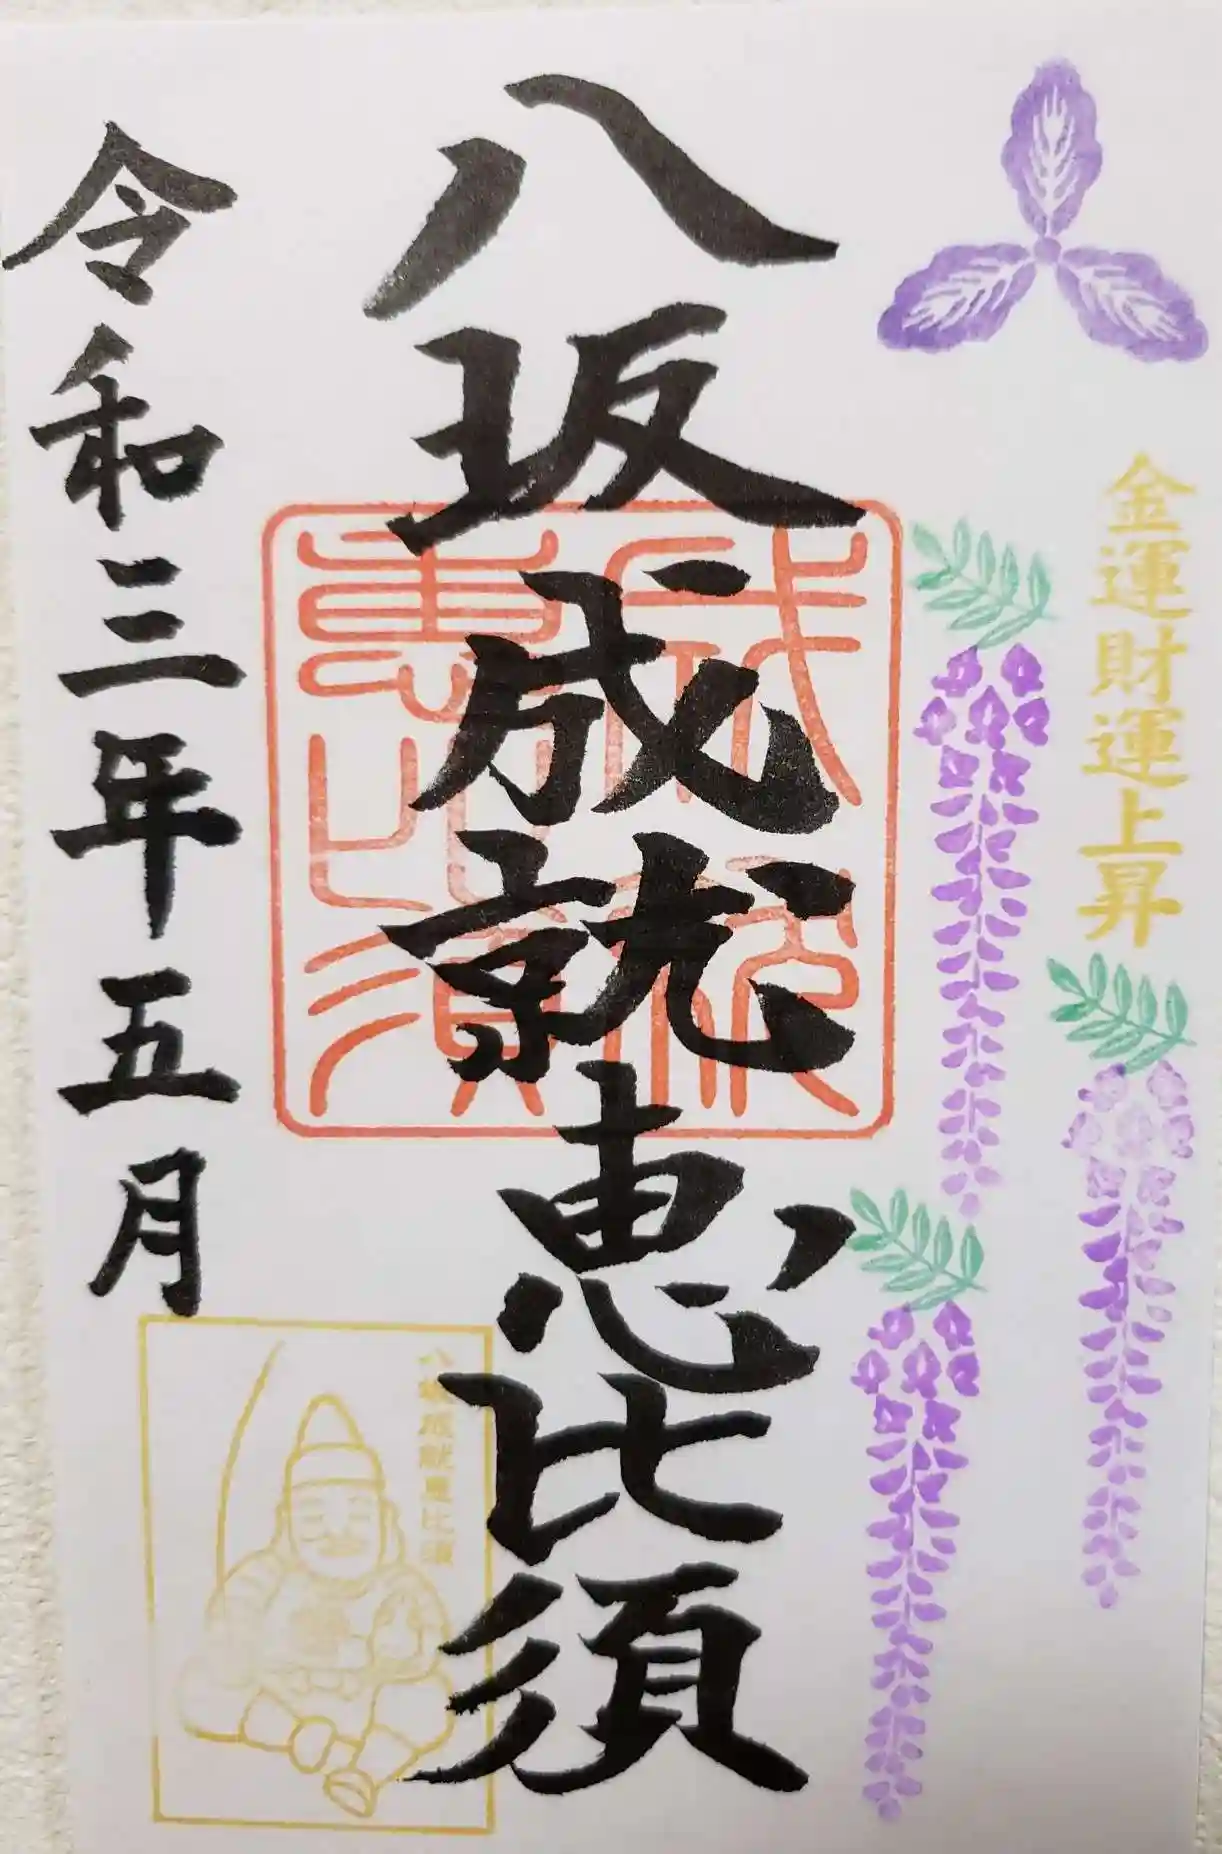 金運財運上昇
八坂成就恵比須
令和三年五月
八坂成就恵比須